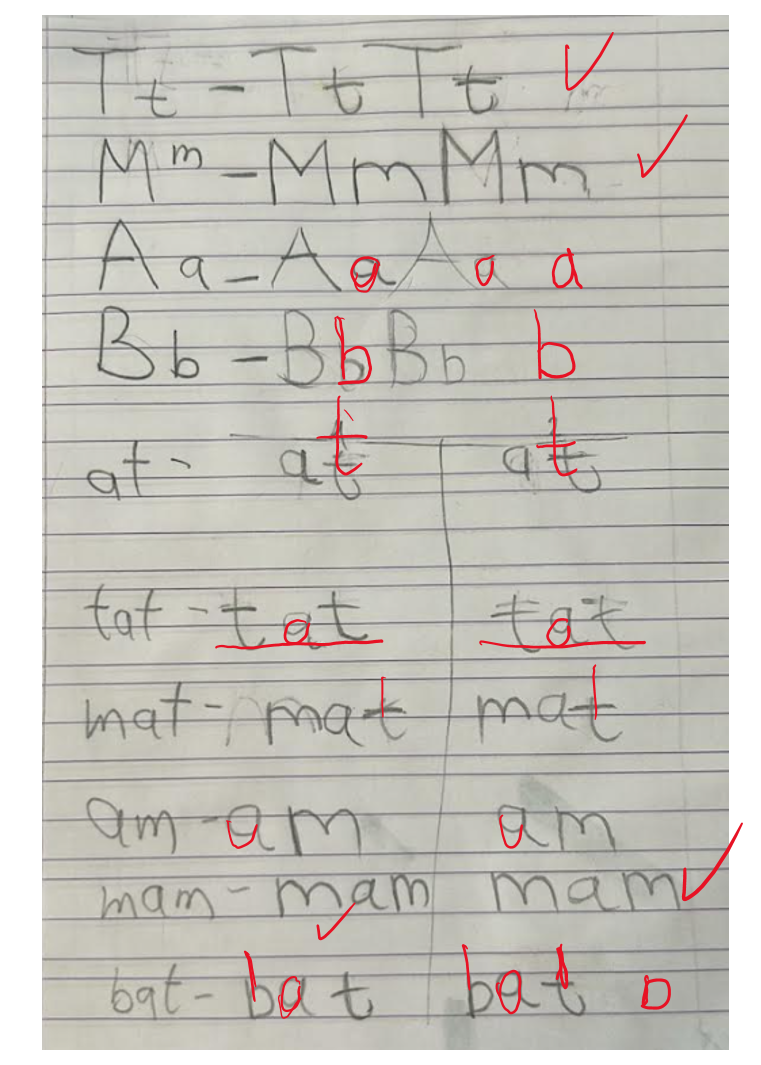 Tt - Tt Tt
Mm - Mm Mm
Aa - Aa Aa a
Bb - Bb Bb b
at - at at
tat - tat tat
mat - mat mat
am - am am
mam - mam mam
bat - bat bat